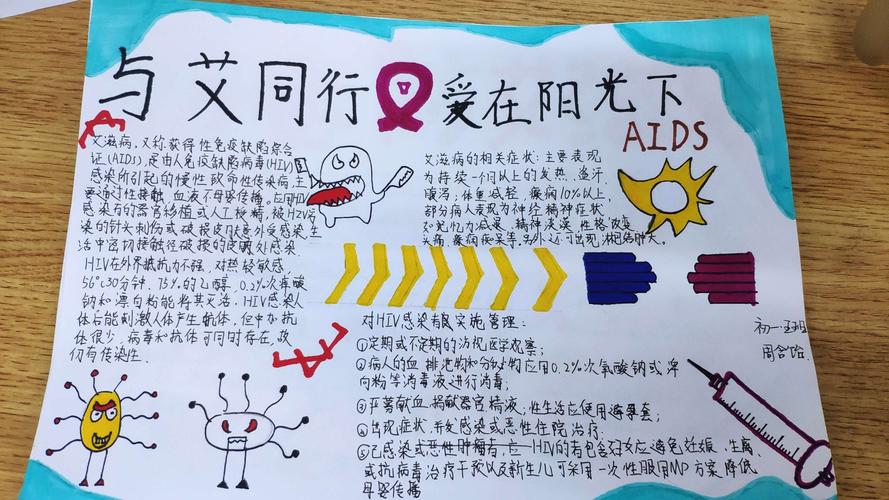 与艾同行 爱在阳光下
AIDS
艾滋病，又称获得性免疫缺陷综合
证(AIDS)，是由人免疫缺陷病毒(HIV)
感染所引起的慢性致命性传染病，主
要通过性接触、血液不母婴传播。应用HIV
感染者的器官移植或人工授精，被HIV污
染的针头刺伤或破损皮肤意外受感染，生
活中密切接触经破损的皮肤处感染.
HIV在外界抵抗力不强，对热轻敏感，
56℃30分钟、75%的乙醇、0.2%次氯酸
钠和漂白粉能将其灭活。HIV感染人
体后能刺激人体产生抗体，但中和抗
体很少，病毒和抗体可同时存在，故
仍有传染性.
艾滋病的相关症状：主要表现
为持续一个月以上的发热、盗汗、
腹泻；体重减轻，10%以上，
部分病人表现为神经精神症状
如记忆力减退、精神淡漠、性格改变、
头痛、癫痫痴呆等。另外还可出现淋巴结肿大。
对HIV感染者及实施管理：
①定期或不定期的访视医学观察；
②病人的血、排泄物和分泌物应用0.2%次氯酸钠或漂
白粉等消毒液进行消毒；
③严禁献血、捐献器官、精液；性生活应使用避孕套；
④出现症状、并发感染或恶性住院治疗.
⑤已感染或恶性肿瘤者，应HIV的育龄妇女应避免妊娠、生育、
或抗病毒治疗干预以及新生儿可采用一次性服用MP方案，降低
母婴传播
初一五班
周含